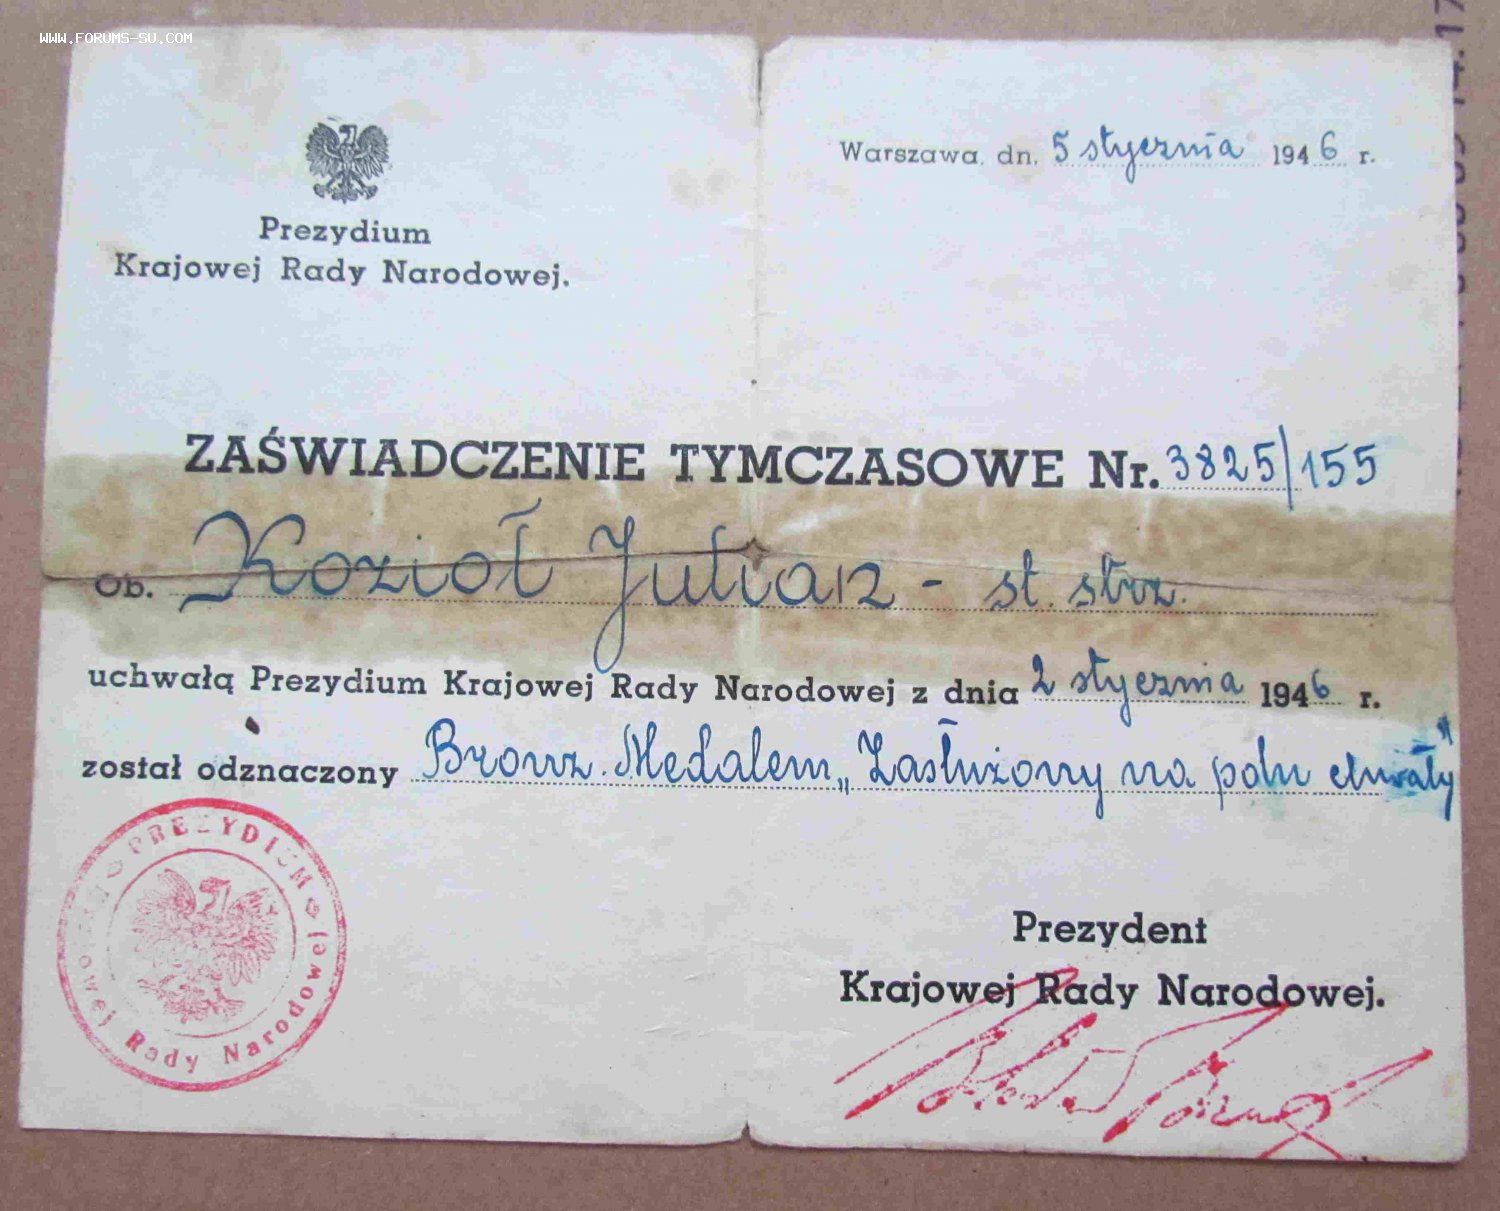 WWW.FORUMS-SU.COM
Warszawa, dn. 5 stycznia 1946 r.
Prezydium
Krajowej Rady Narodowej.
ZAŚWIADCZENIE TYMCZASOWE Nr. 3825/155
Ob. Kozioł Julian - st. strz.
uchwałą Prezydium Krajowej Rady Narodowej z dnia 2 stycznia 1946 r.
został odznaczony Bronz. Medalem „Zasłużony na polu chwały"
PREZYDIUM
owej Rady Narodowej
Prezydent
Krajowej Rady Narodowej.